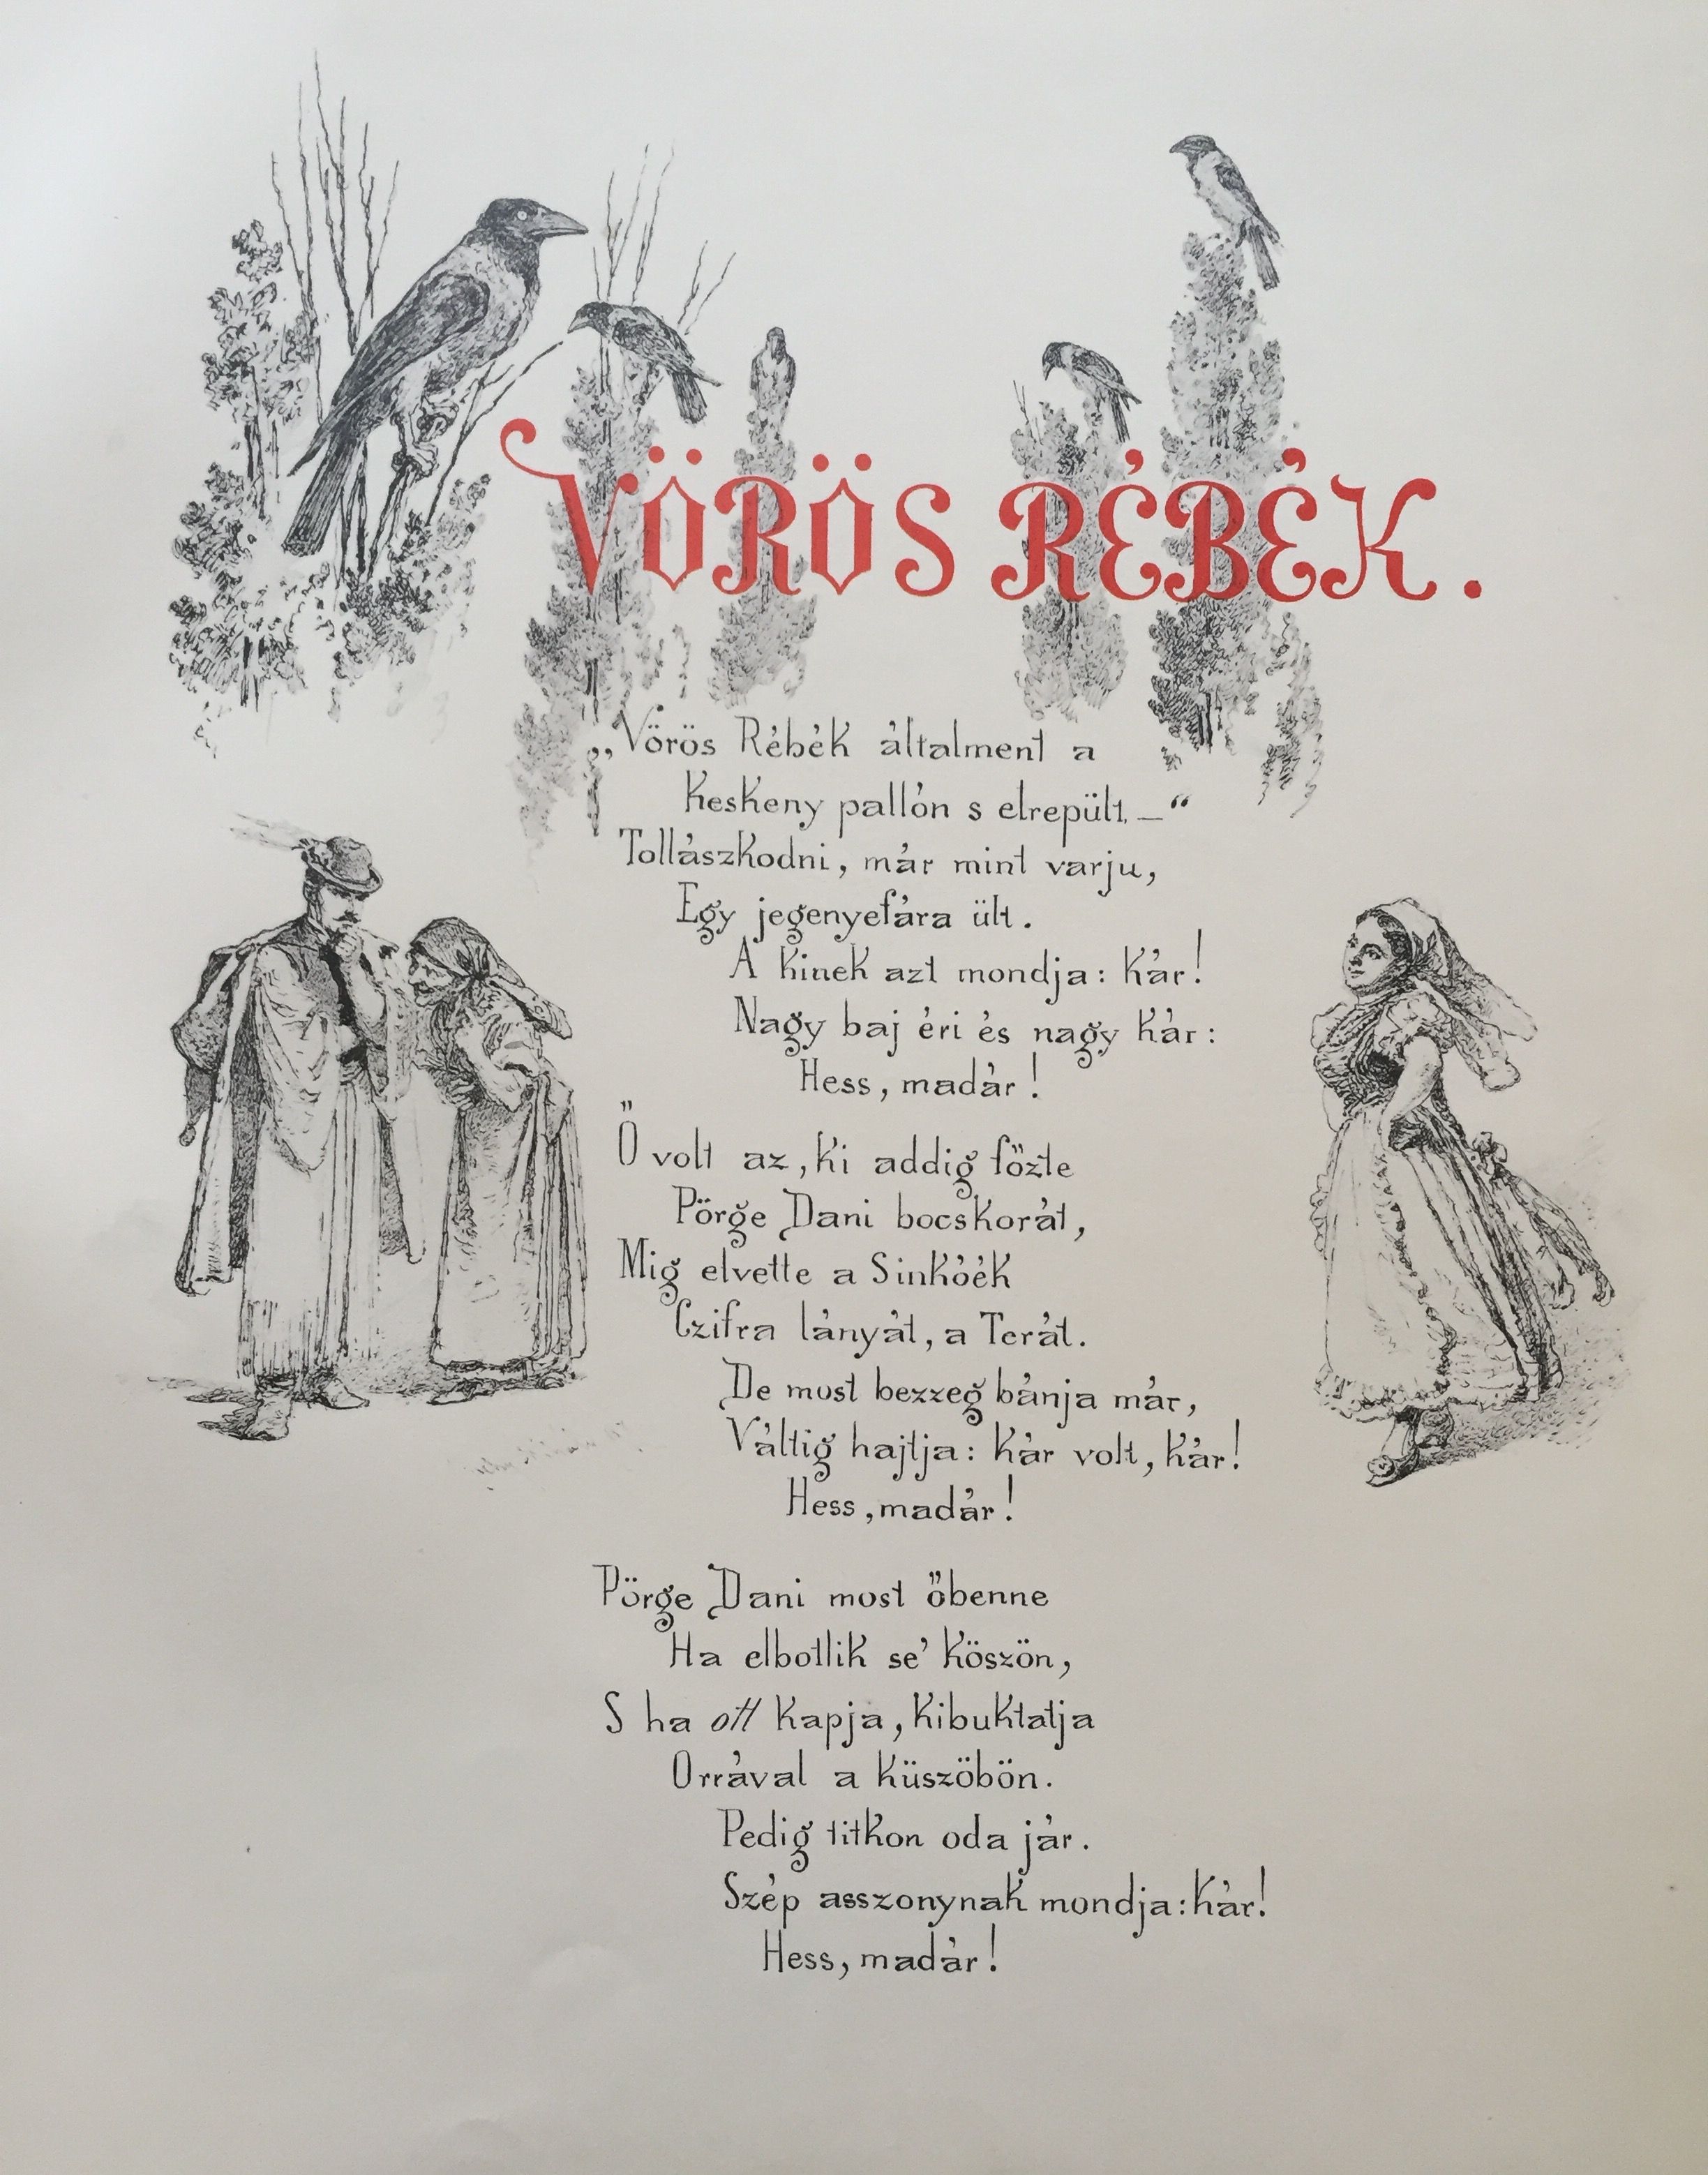 VÖRÖS RÉBÉK.
„Vörös Rébék általment a
Keskeny pallón s elrepült. —“
Tollászkodni, már mint varju,
Egy jegenyefára ült.
A kinek azt mondja: kár!
Nagy baj éri és nagy kár:
Hess, madár!
Ő volt az, ki addig főzte
Pörge Dani bocskorát,
Mig elvette a Sinkóék
Czifra lányát, a Terát.
De most bezzeg bánja már,
Váltig hajtja: kár volt, kár!
Hess, madár!
Pörge Dani most őbenne
Ha elbotlik se’ köszön,
S ha ott kapja, kibuktatja
Orrával a küszöbön.
Pedig titkon oda jár.
Szép asszonynak mondja: kár!
Hess, madár!